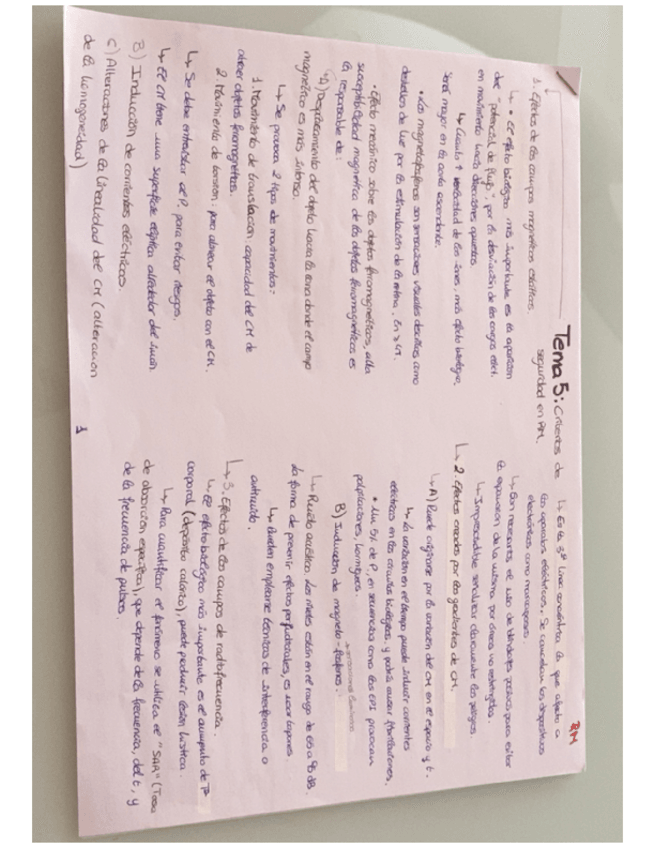 RM
Tema 5: Criterios de
seguridad en RM.
1. Efectos de los campos magnéticos estáticos.
↳ • El efecto biológico más importante es la aparición
del "potencial de flujo", por la desviación de las cargas eléct.
en movimiento hacia direcciones opuestas.
↳ Cuanto ↑ velocidad de los iones, más efecto biológico,
será mayor en la aorta ascendente.
• Los magnetofosfenos son sensaciones visuales descritas como
destellos de luz por la estimulación de la retina, en
• Efecto mecánico sobre los objetos ferromagnéticos, alta
susceptibilidad magnética de los objetos ferromagnéticos es
la responsable de:
A) Desplazamiento del objeto hacia la zona donde el campo
magnético es más intenso.
↳ Se provoca 2 tipos de movimientos:
1. Movimiento de translación: capacidad del CM de
atraer objetos ferromagnéticos.
2. Movimiento de torsión: para alinear el objeto con el CM.
↳ Se debe entrevistar al P. para evitar riesgos.
↳ El CM tiene una superficie elíptica alrededor del imán.
B) Inducción de corrientes eléctricas.
C) Alteraciones de la linealidad del CM (alteración
de la homogeneidad)
1
↳ Es la línea la que afecta a
los aparatos eléctricos. Se cancelan los dispositivos
electrónicos como marcapasos.
↳ Son necesarios el uso de blindajes pasivos para evitar
la expansión de la misma por áreas no restringidas.
↳ Imprescindible señalizar claramente los peligros
↳ 2. Efectos creados por los gradientes de CM.
↳ A) Puede originarse por la variación del CM en el espacio y t.
↳ La variación en el tiempo puede inducir corrientes
eléctricas en los circuitos biológicos y podrá causar fibrilaciones.
• Un 5% de P, en secuencias como las EPI provocan
palpitaciones, hormigueos.
B) Inducción de magneto-fosfenos.
↳ Ruido acústico: Los niveles están en el rango de 65 a 95 dB.
La forma de prevenir efectos perjudiciales, es usar tapones
↳ Pueden emplearse técnicas de interferencia o
antiruido.
↳ 3. Efectos de los campos de radiofrecuencia.
↳ El efecto biológico más importante es el aumento de Tª
corporal (depósito calórico), puede producir lesión tisular.
↳ Para cuantificar el fenómeno se utiliza el "SAR" (Tasa
de absorción específica), que depende de la frecuencia del t, y
de la frecuencia de pulsos.